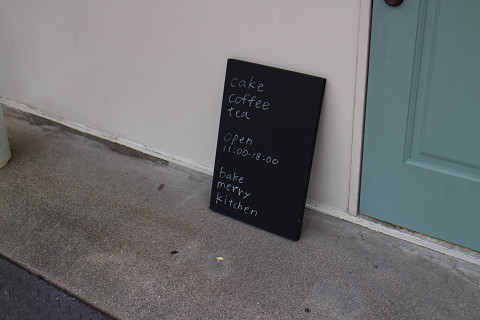 cake
coffee
tea
open
11:00-18:00
bake
merry
kitchen